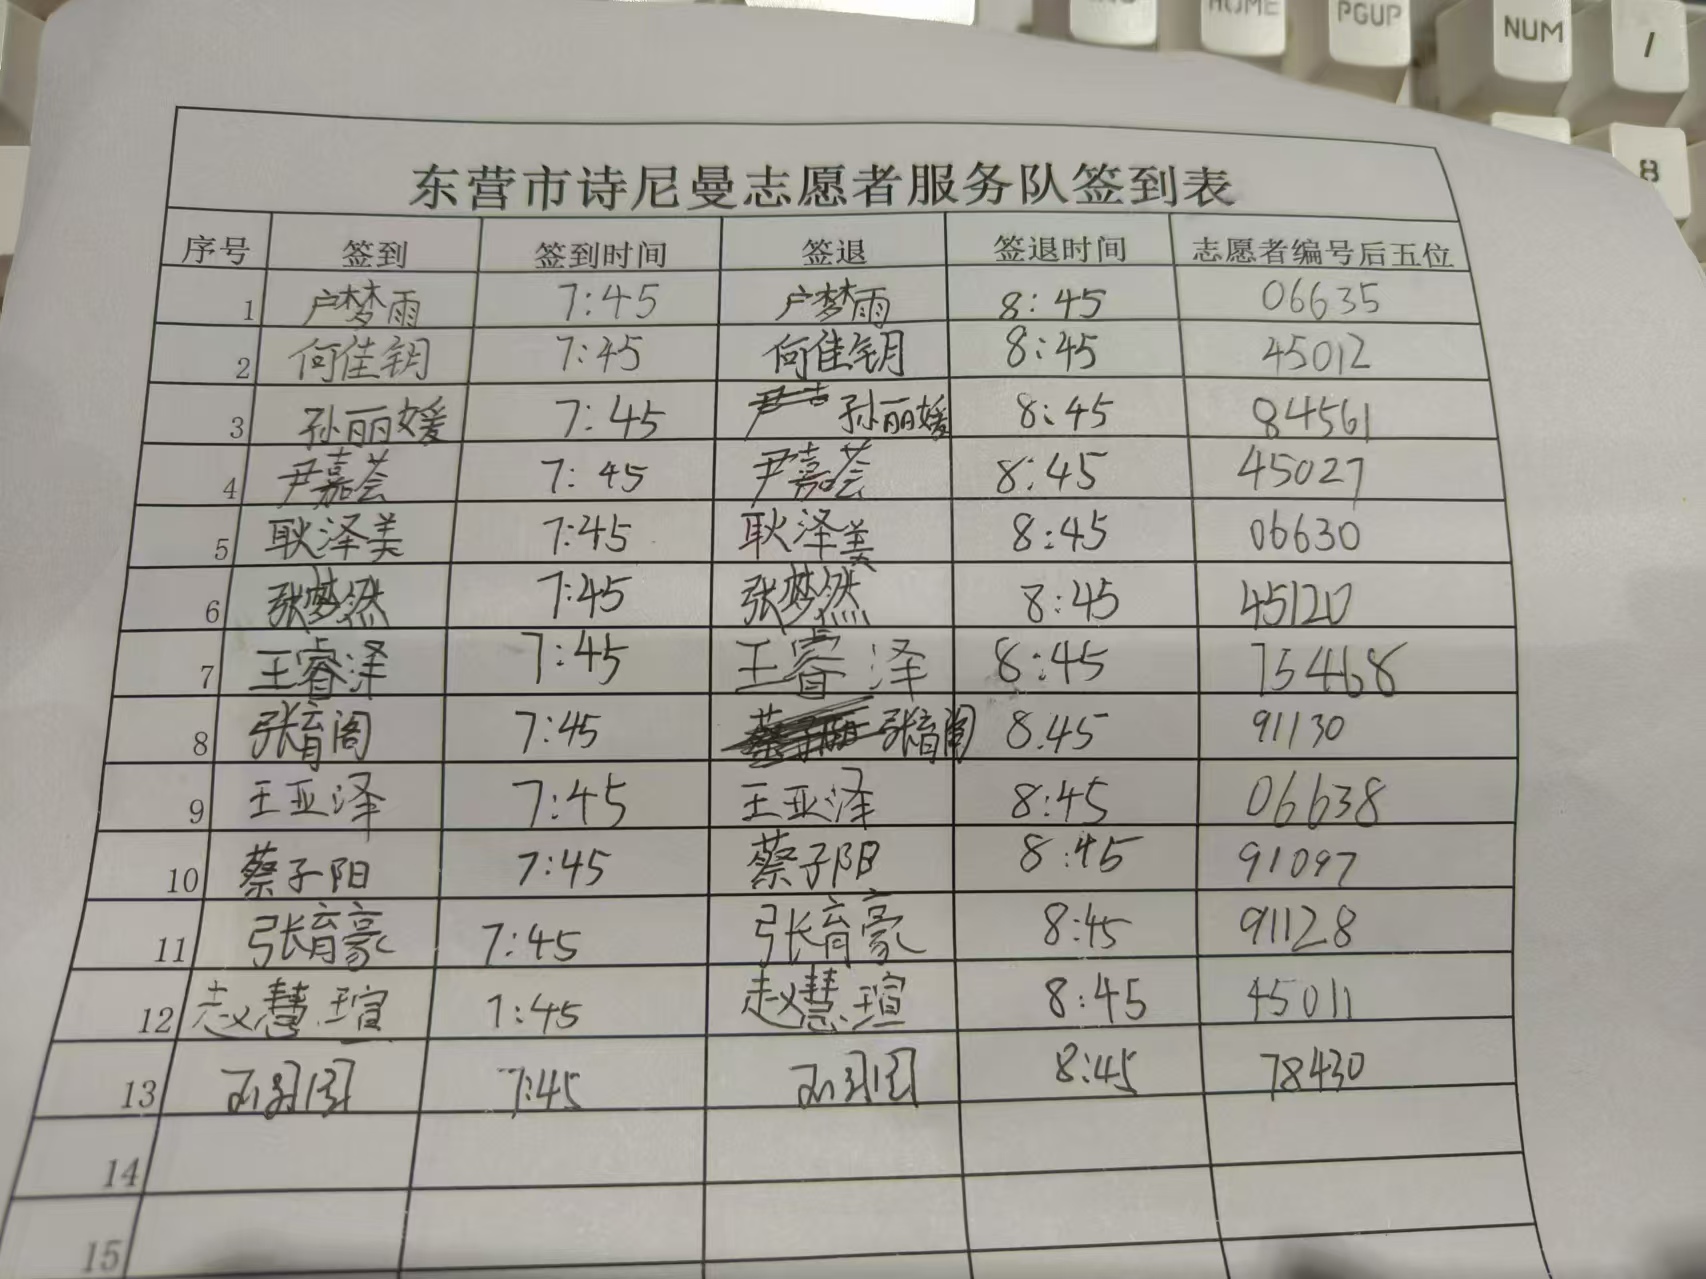 NUM
/
HOME
PGUP
8
东营市诗尼曼志愿者服务队签到表
序号 签到 签到时间 签退 签退时间 志愿者编号后五位
1 卢梦雨 7:45 卢梦雨 8:45 06635
2 何佳钥 7:45 何佳钥 8:45 45012
3 孙丽媛 7:45 孙丽媛 8:45 84561
4 尹嘉荟 7:45 尹嘉荟 8:45 45027
5 耿泽美 7:45 耿泽美 8:45 06630
6 张梦然 7:45 张梦然 8:45 45120
7 王睿泽 7:45 王睿泽 8:45 75468
8 张育阁 7:45 张育阁 8.45 91130
9 王亚泽 7:45 王亚泽 8:45 06638
10 蔡子阳 7:45 蔡子阳 8:45 91097
11 张育豪 7:45 张育豪 8:45 91128
12 赵慧瑄 7:45 赵慧瑄 8:45 45011
13 7:45 8:45 78430
14
15